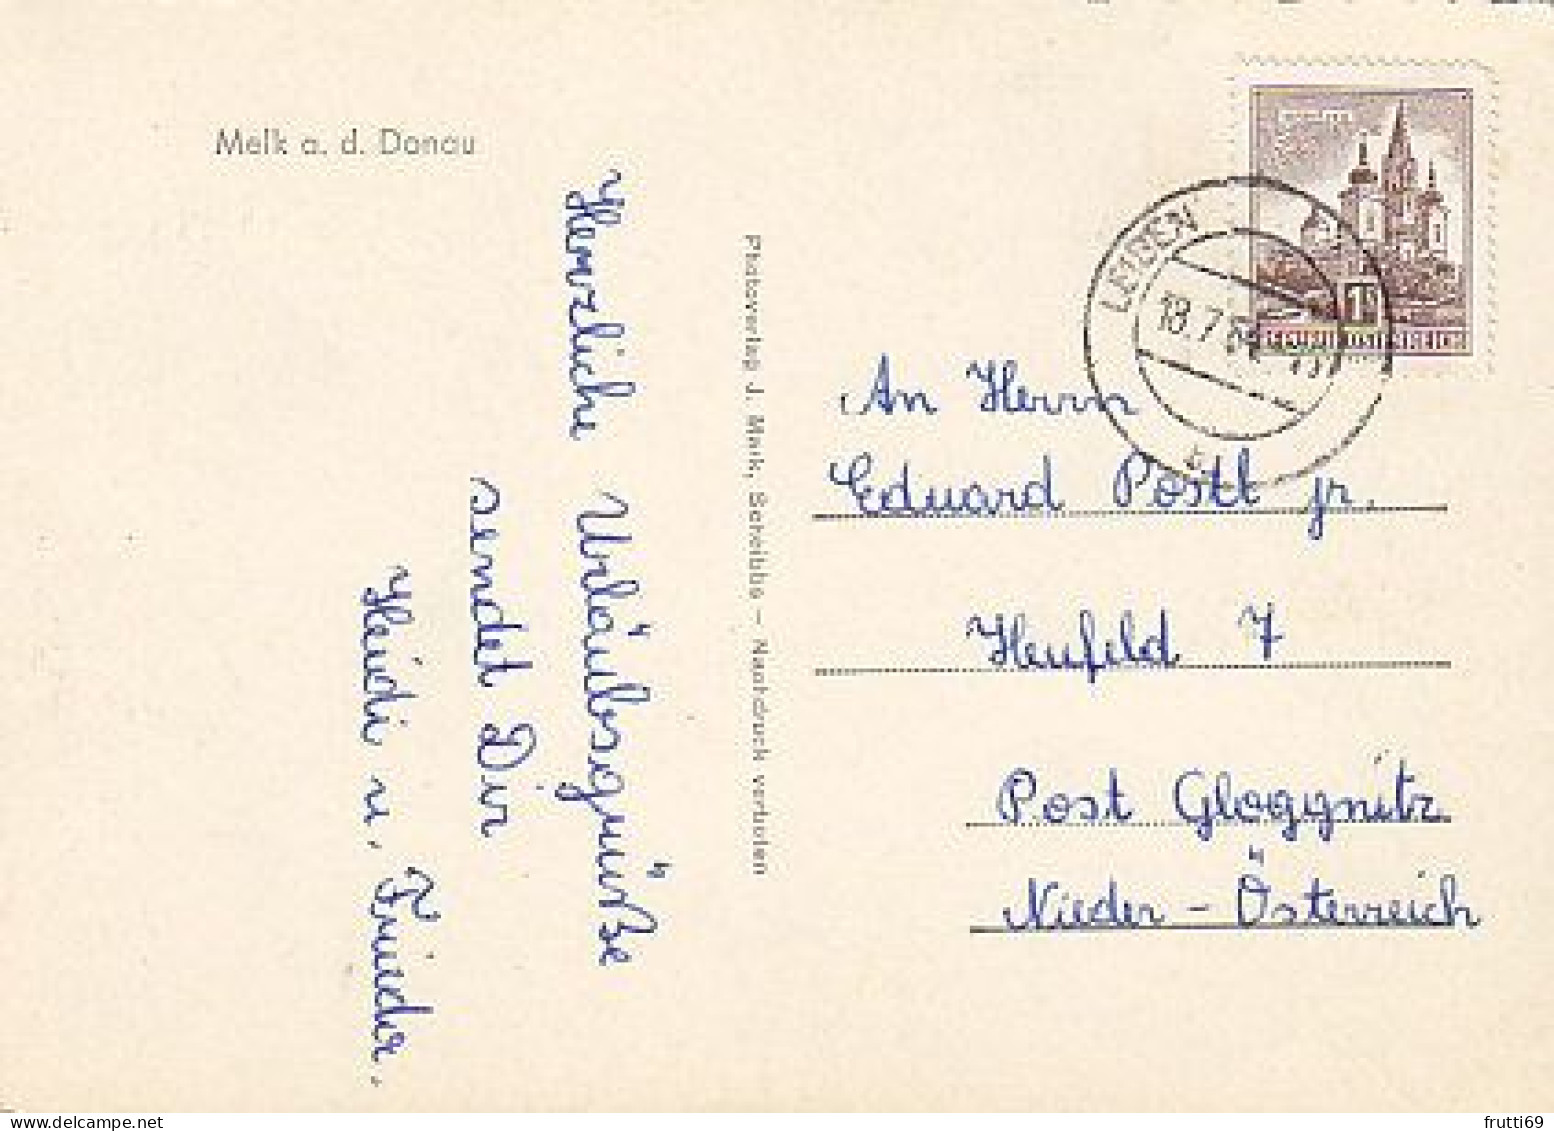 Melk a. d. Donau
Herzliche Urlaubsgrüße
sendet Dir
Heidi u. Frieder.
Photoverlag J. Mark, Scheibbs – Nachdruck verboten
LEIBEN
18.7.
An Herrn
Eduard Postl jr.
Heufeld 7
Post Gloggnitz
Nieder-Österreich
frutti69